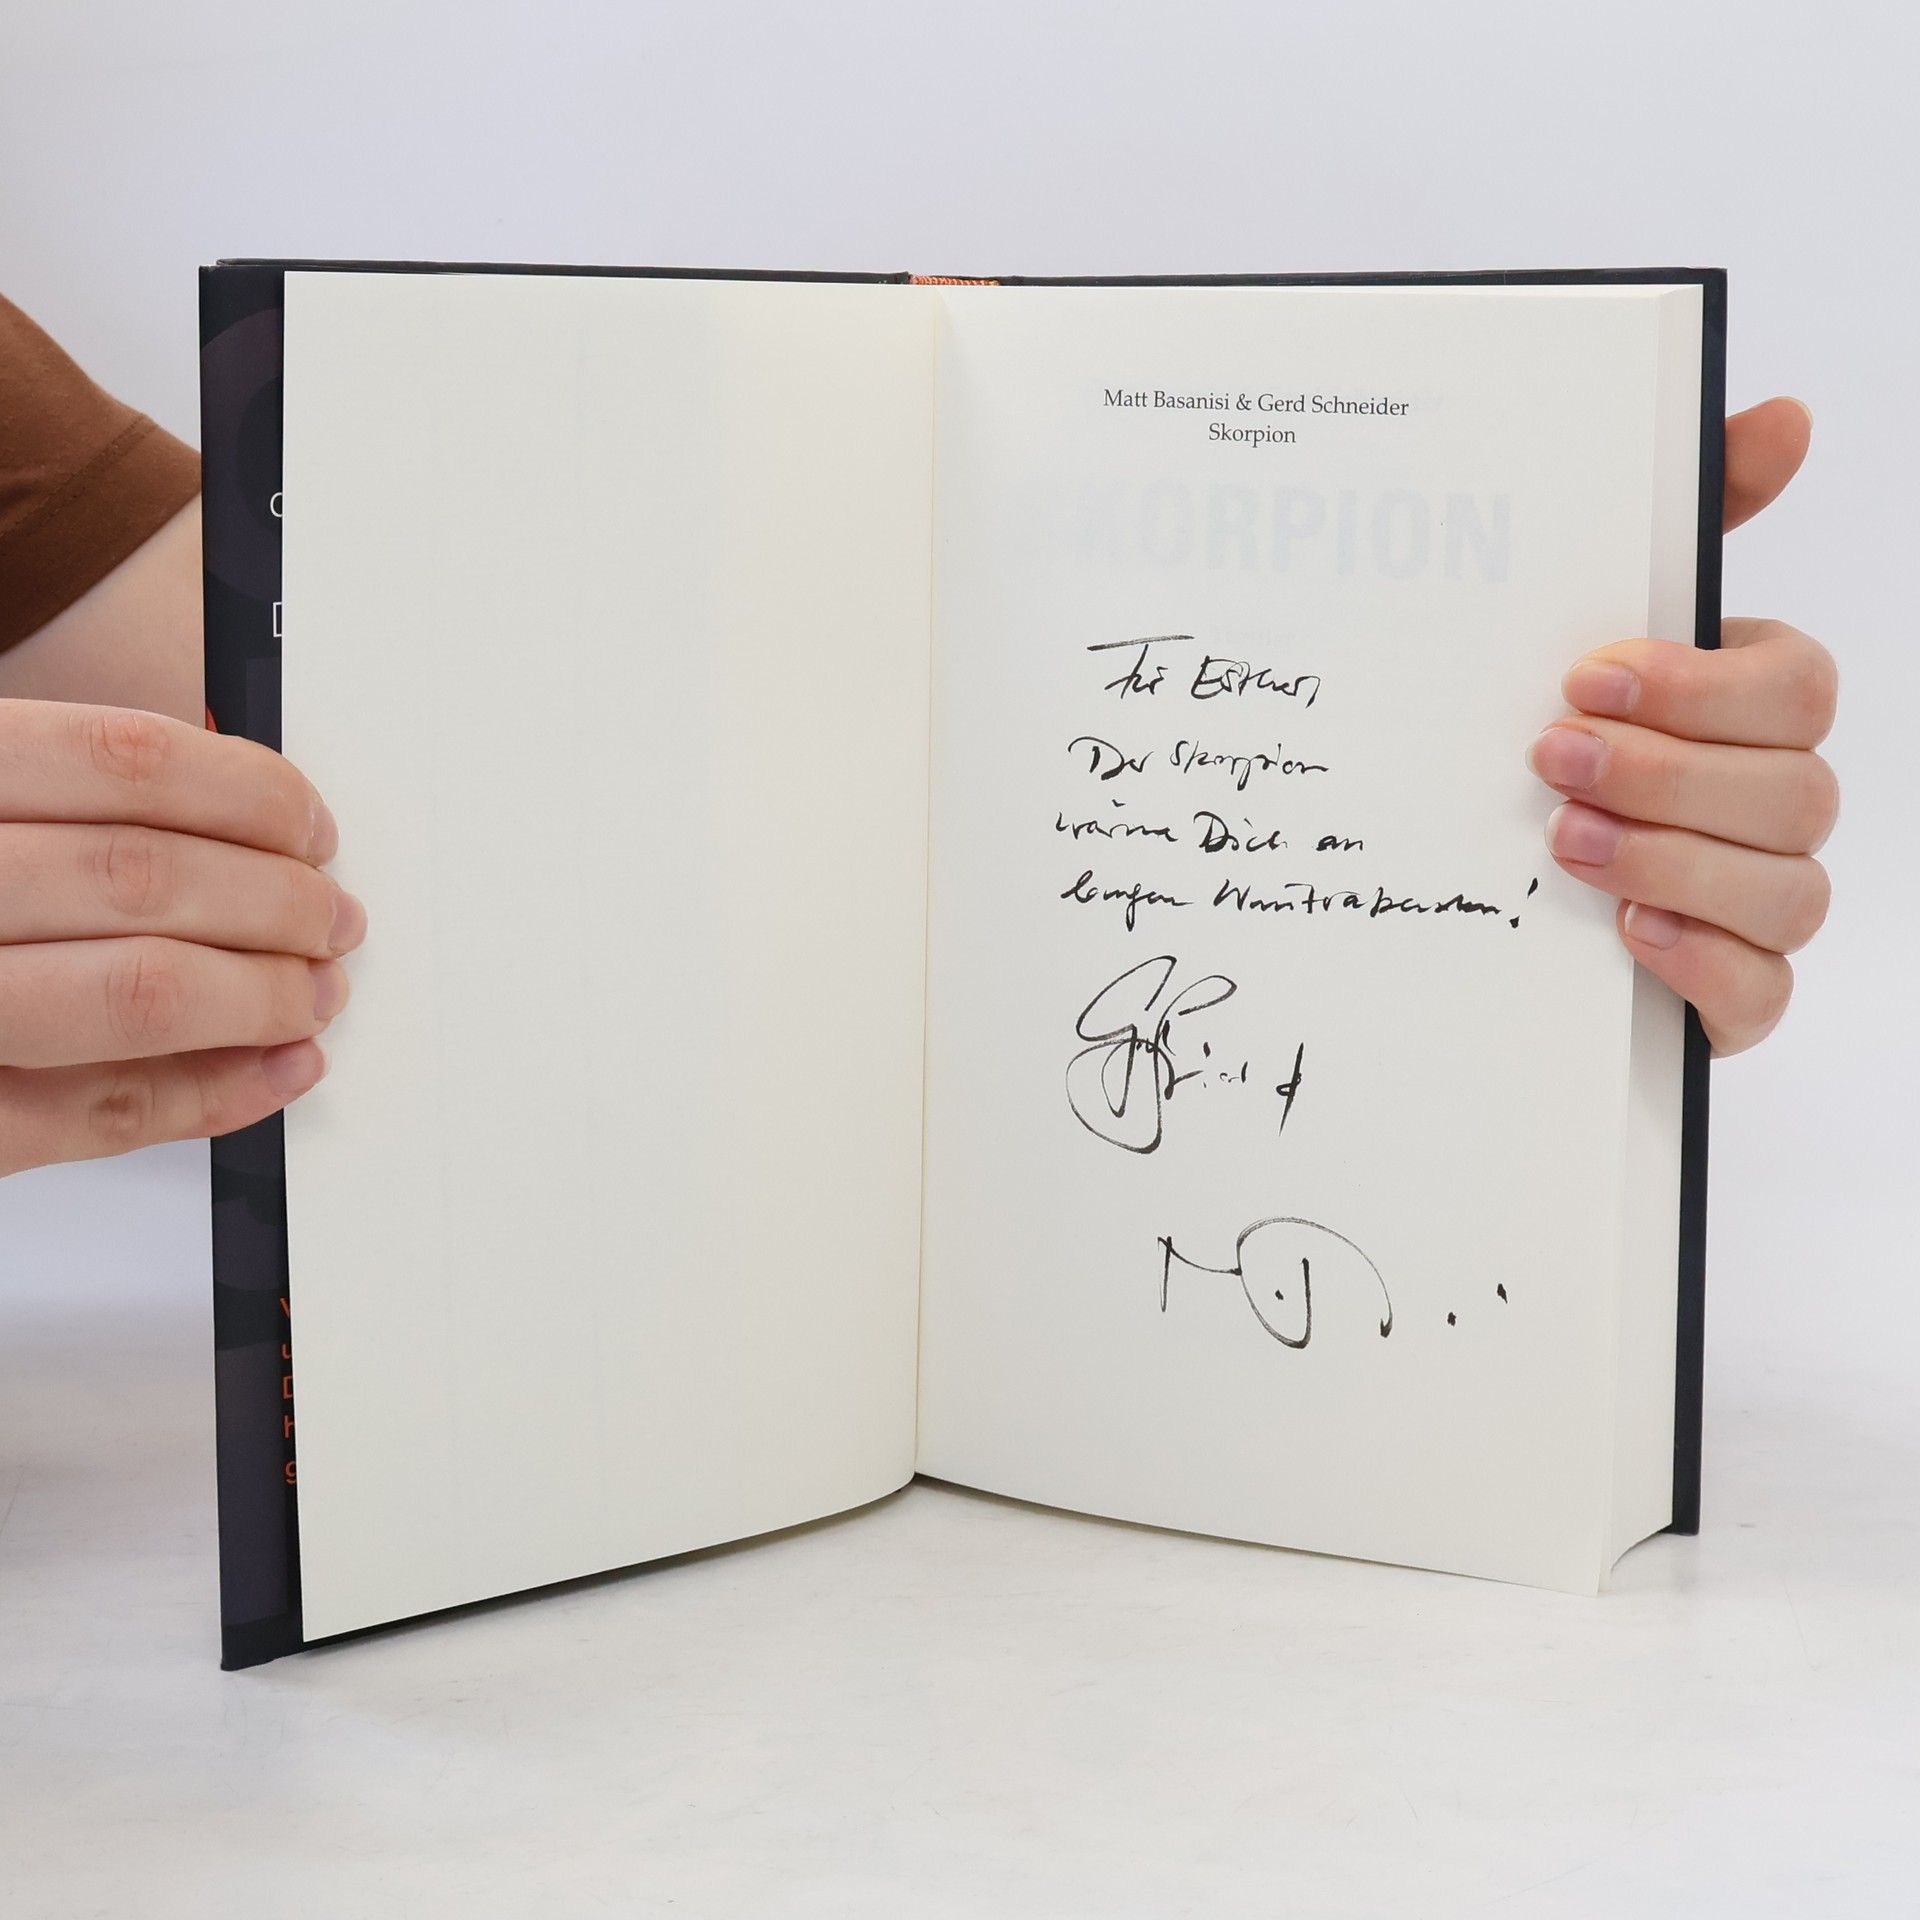 Matt Basanisi & Gerd Schneider
Skorpion
KORPION
Für Esther,
Der Skorpion
wärme Dich an
langen Winterabenden!